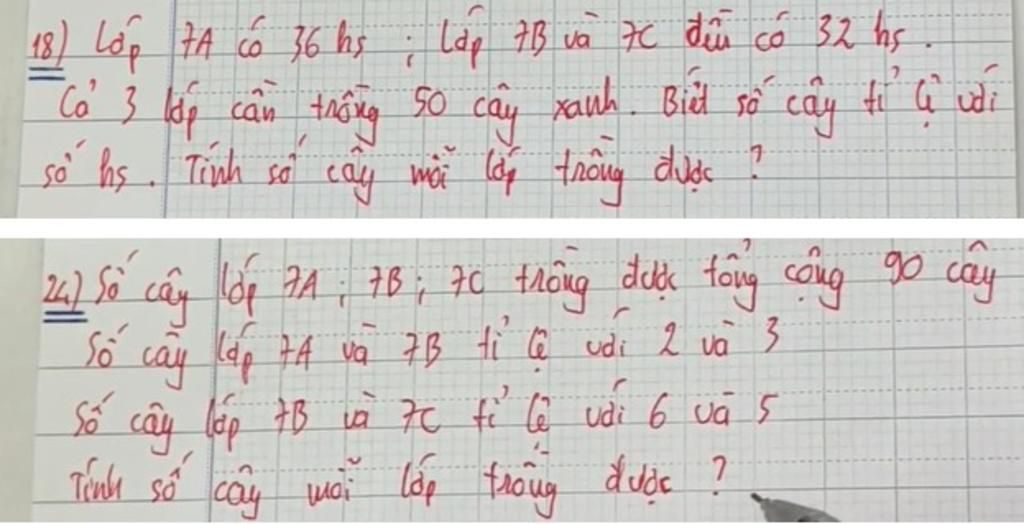 18) Lớp 7A có 36 hs ; Lớp 7B và 7C đều có 32 hs.
Cả 3 lớp cần trồng 50 cây xanh. Biết số cây tỉ lệ với
số hs. Tính số cây mỗi lớp trồng được ?
24) Số cây lớp 7A ; 7B ; 7C trồng được tổng cộng 90 cây
Số cây lớp 7A và 7B tỉ lệ với 2 và 3
Số cây lớp 7B và 7C tỉ lệ với 6 và 5
Tính số cây mỗi lớp trồng được ?